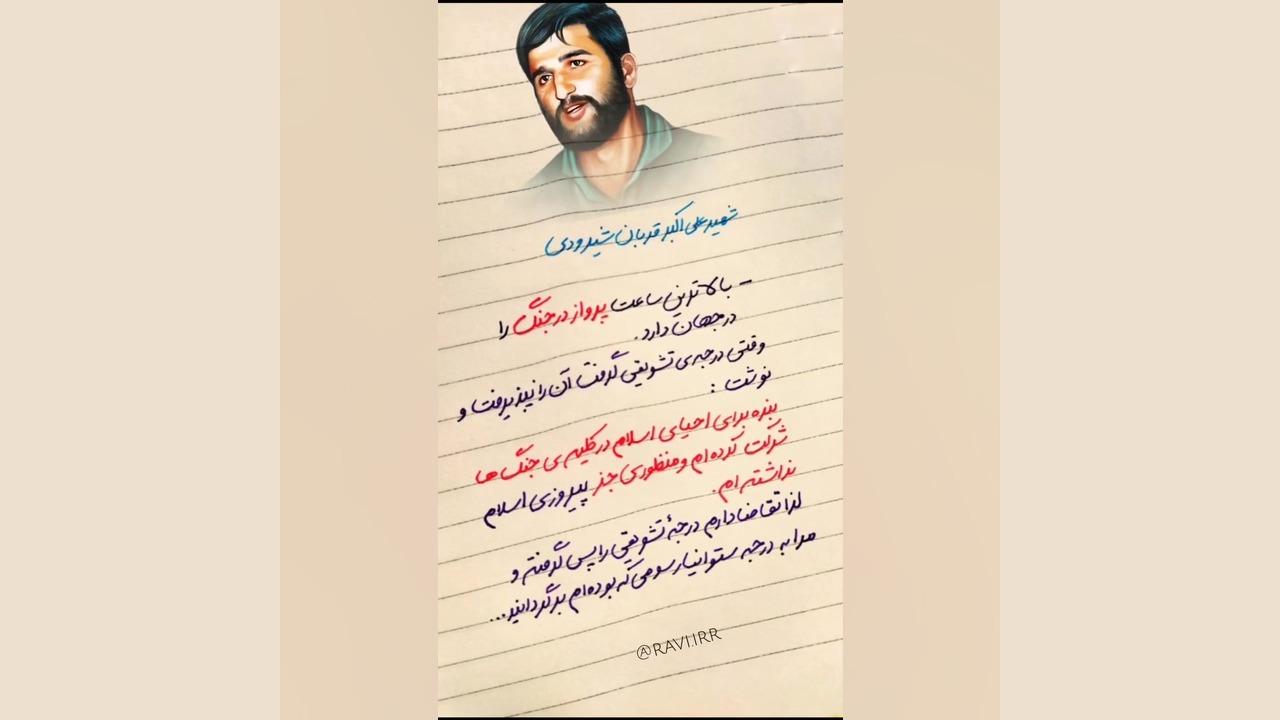 شهید علی اکبر قربان شیرودی
- بالاترین ساعت پرواز در جنگ را
در جهان دارد.
وقتی درجه‌ی تشویقی گرفت آن را نپذیرفت و
نوشت :
بنده برای احیای اسلام در کلیه ی جنگ ها
شرکت کرده ام و منظوری جز پیروزی اسلام
نداشته ام.
لذا تقاضا دارم درجهٔ تشویقی را پس گرفته و
مرا به درجه ستوانیار سومی که بوده ام برگردانید...
@RAVI.IRR